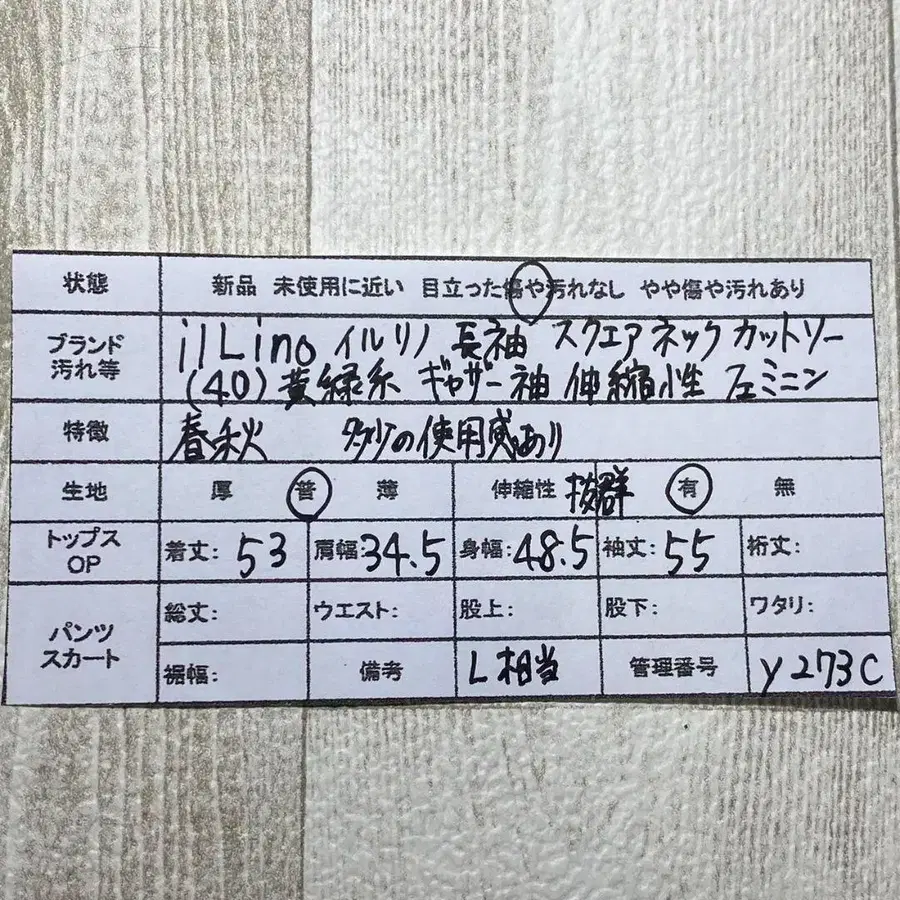 状態 新品 未使用に近い 目立った傷や汚れなし やや傷や汚れあり
ブランド 汚れ等 ilLino イルリノ 長袖 スクエアネックカットソー
(40) 黄緑系 ギャザー袖 伸縮性 フェミニン
特徴 春秋 多少の使用感あり
生地 厚 普 薄 伸縮性 抜群 有 無
トップス OP 着丈: 53 肩幅: 34.5 身幅: 48.5 袖丈: 55 裄丈:
パンツ スカート 総丈: ウエスト: 股上: 股下: ワタリ:
裾幅: 備考 L相当 管理番号 y273C